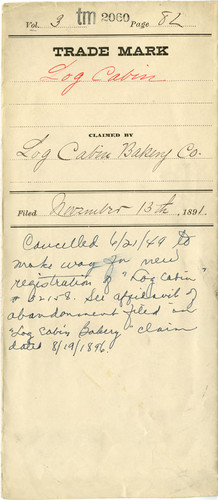 Vol. 3 tm 2060 Page 82
TRADE MARK
Log Cabin
CLAIMED BY
Log Cabin Bakery Co.
Filed November 13th, 1891.
Cancelled 6/21/49 to
make way for new
registration of "Log Cabin"
# 02158. See affidavit of
abandonment filed in
"Log Cabin Bakery" claim
dated 8/19/1896.